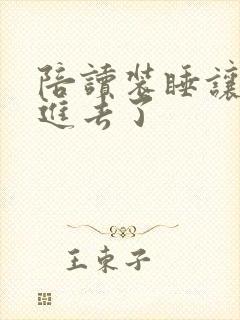 陪讀裝睡讓
進去了
王東子